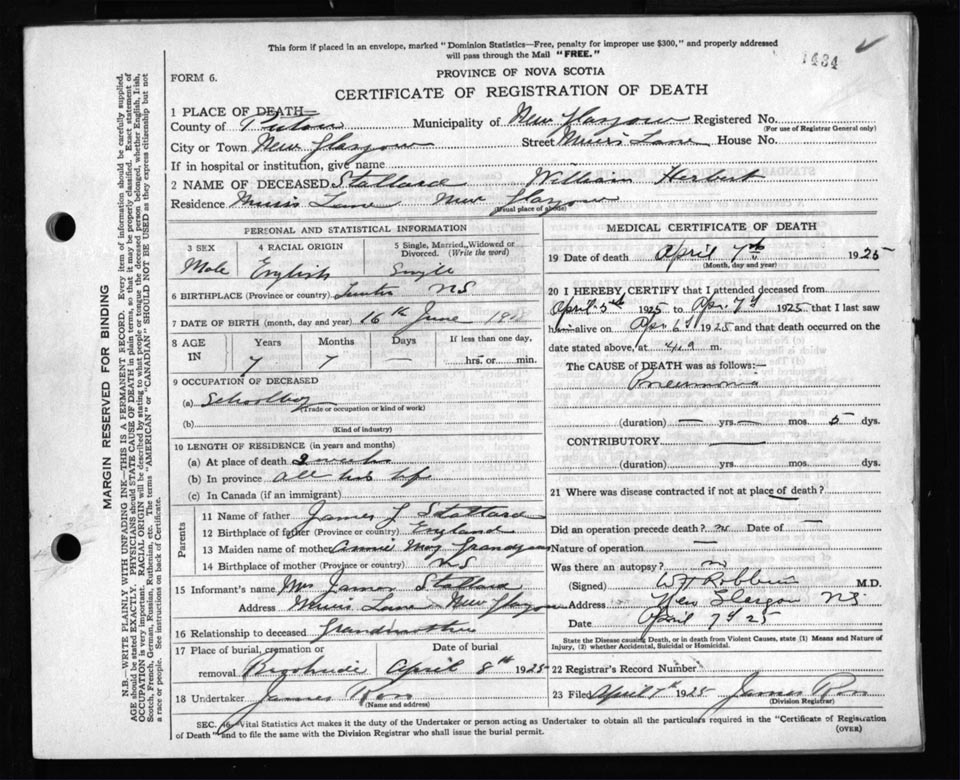 This form if placed in an envelope, marked "Dominion Statistics—Free, penalty for improper use $300," and properly addressed
will pass through the Mail "FREE."
1434
FORM 6.
PROVINCE OF NOVA SCOTIA
CERTIFICATE OF REGISTRATION OF DEATH
MARGIN RESERVED FOR BINDING
N.B.—WRITE PLAINLY WITH UNFADING INK—THIS IS A PERMANENT RECORD. Every item of information should be carefully supplied.
AGE should be stated EXACTLY. PHYSICIANS should STATE CAUSE OF DEATH in plain terms, so that it may be properly classified. Exact statement of
OCCUPATION is very important. RACIAL ORIGIN will be described by stating to what people or tongue the deceased person belonged, whether English, Irish,
Scotch, French, German, Russian, Ruthenian, etc. The terms "AMERICAN" or "CANADIAN" SHOULD NOT BE USED as they express citizenship but not
a race or people. See instructions on back of Certificate.
1 PLACE OF DEATH—
County of Pictou Municipality of New Glasgow Registered No.
(For use of Registrar General only)
City or Town New Glasgow Street Muirs Lane House No.
If in hospital or institution, give name
2 NAME OF DECEASED Stallard William Herbert
Residence Muirs Lane New Glasgow
(Usual place of abode)
PERSONAL AND STATISTICAL INFORMATION
3 SEX 4 RACIAL ORIGIN 5 Single, Married, Widowed or Divorced. (Write the word)
Male English Single
6 BIRTHPLACE (Province or country) NS
7 DATE OF BIRTH (month, day and year) 16th June
8 AGE IN Years Months Days If less than one day,
7 7 — hrs. or min.
9 OCCUPATION OF DECEASED
(a) Schoolboy
(Trade or occupation or kind of work)
(b)
(Kind of industry)
10 LENGTH OF RESIDENCE (in years and months)
(a) At place of death weeks
(b) In province all his life
(c) In Canada (if an immigrant)
Parents
11 Name of father James Stallard
12 Birthplace of father (Province or country) England
13 Maiden name of mother Annie May
14 Birthplace of mother (Province or country) NS
15 Informant's name Mrs James Stallard
Address Muirs Lane New Glasgow
16 Relationship to deceased Grandmother
17 Place of burial, cremation or removal Date of burial
Brookside April 8th 1925
18 Undertaker James Ross
(Name and address)
MEDICAL CERTIFICATE OF DEATH
19 Date of death April 7th 1925
(Month, day and year)
20 I HEREBY CERTIFY that I attended deceased from
April 5th 1925 to Apr 7th 1925 that I last saw
him alive on Apr 6th 1925 and that death occurred on the
date stated above, at m.
The CAUSE OF DEATH was as follows:—
Pneumonia
(duration) — yrs. — mos. 5 dys.
CONTRIBUTORY —
(duration) yrs. mos. dys.
21 Where was disease contracted if not at place of death?
Did an operation precede death? no Date of —
Nature of operation —
Was there an autopsy? no
(Signed) M.D.
Address New Glasgow NS
Date April 7th 25
State the Disease causing Death, or in death from Violent Causes, state (1) Means and Nature of
Injury, (2) whether Accidental, Suicidal or Homicidal.
22 Registrar's Record Number
23 Filed April 7th 1925 James Ross
(Division Registrar)
SEC. Vital Statistics Act makes it the duty of the Undertaker or person acting as Undertaker to obtain all the particulars required in the "Certificate of Registration
of Death" and to file the same with the Division Registrar who shall issue the burial permit.
(OVER)